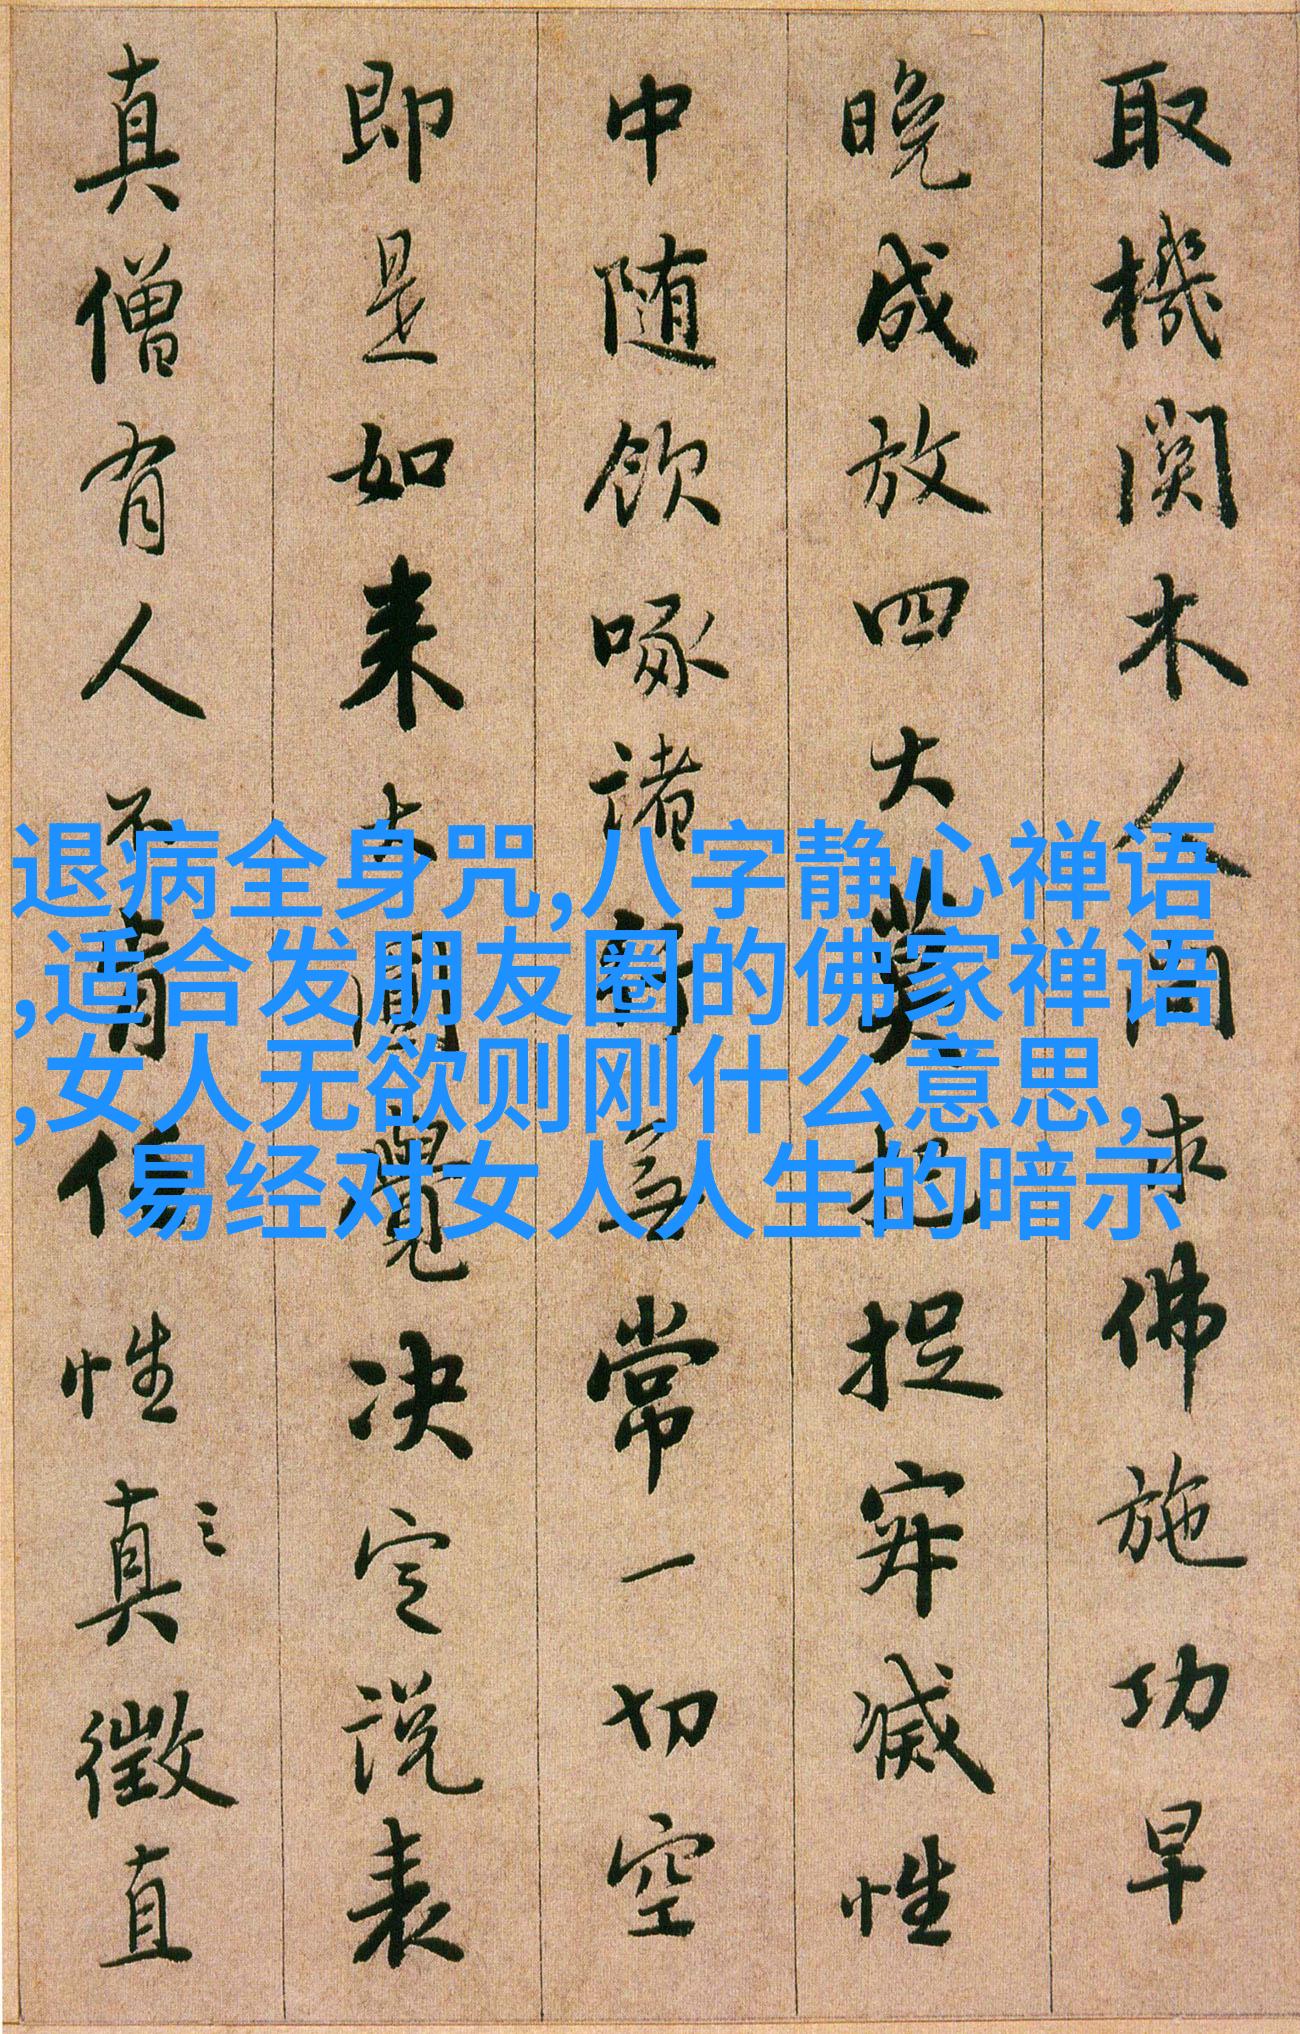 取機関木人問求佛施功早
晚成放四大莫把捉寂滅性
中随飲啄諸行無常一切空
即是如来大圓覺决定說表
真僧有人不肯任性真徵直
退病全身咒,八字静心禅语
,适合发朋友圈的佛家禅语
,女人无欲则刚什么意思,
易经对女人人生的暗示